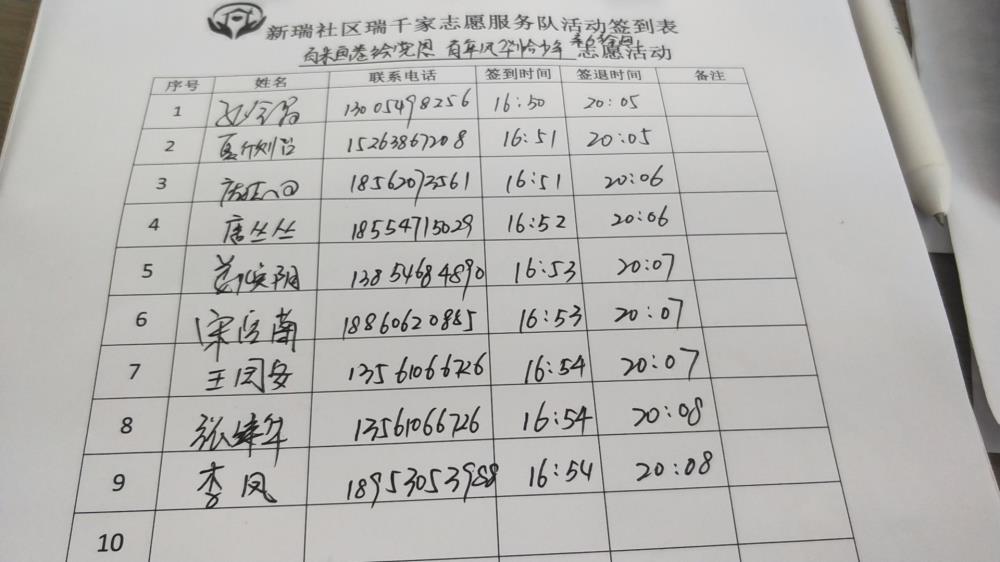 新瑞社区瑞千家志愿服务队活动签到表
百米画卷绘党恩 百年风华恰少年 志愿活动
序号 姓名 联系电话 签到时间 签退时间 备注
1 13005498256 16:50 20:05
2 15263867208 16:51 20:05
3 18562073561 16:51 20:06
4 唐丛丛 18554715029 16:52 20:06
5 13854684890 16:53 20:07
6 18860620885 16:53 20:07
7 13561066726 16:54 20:07
8 13561066726 16:54 20:08
9 李凤 18953053988 16:54 20:08
10